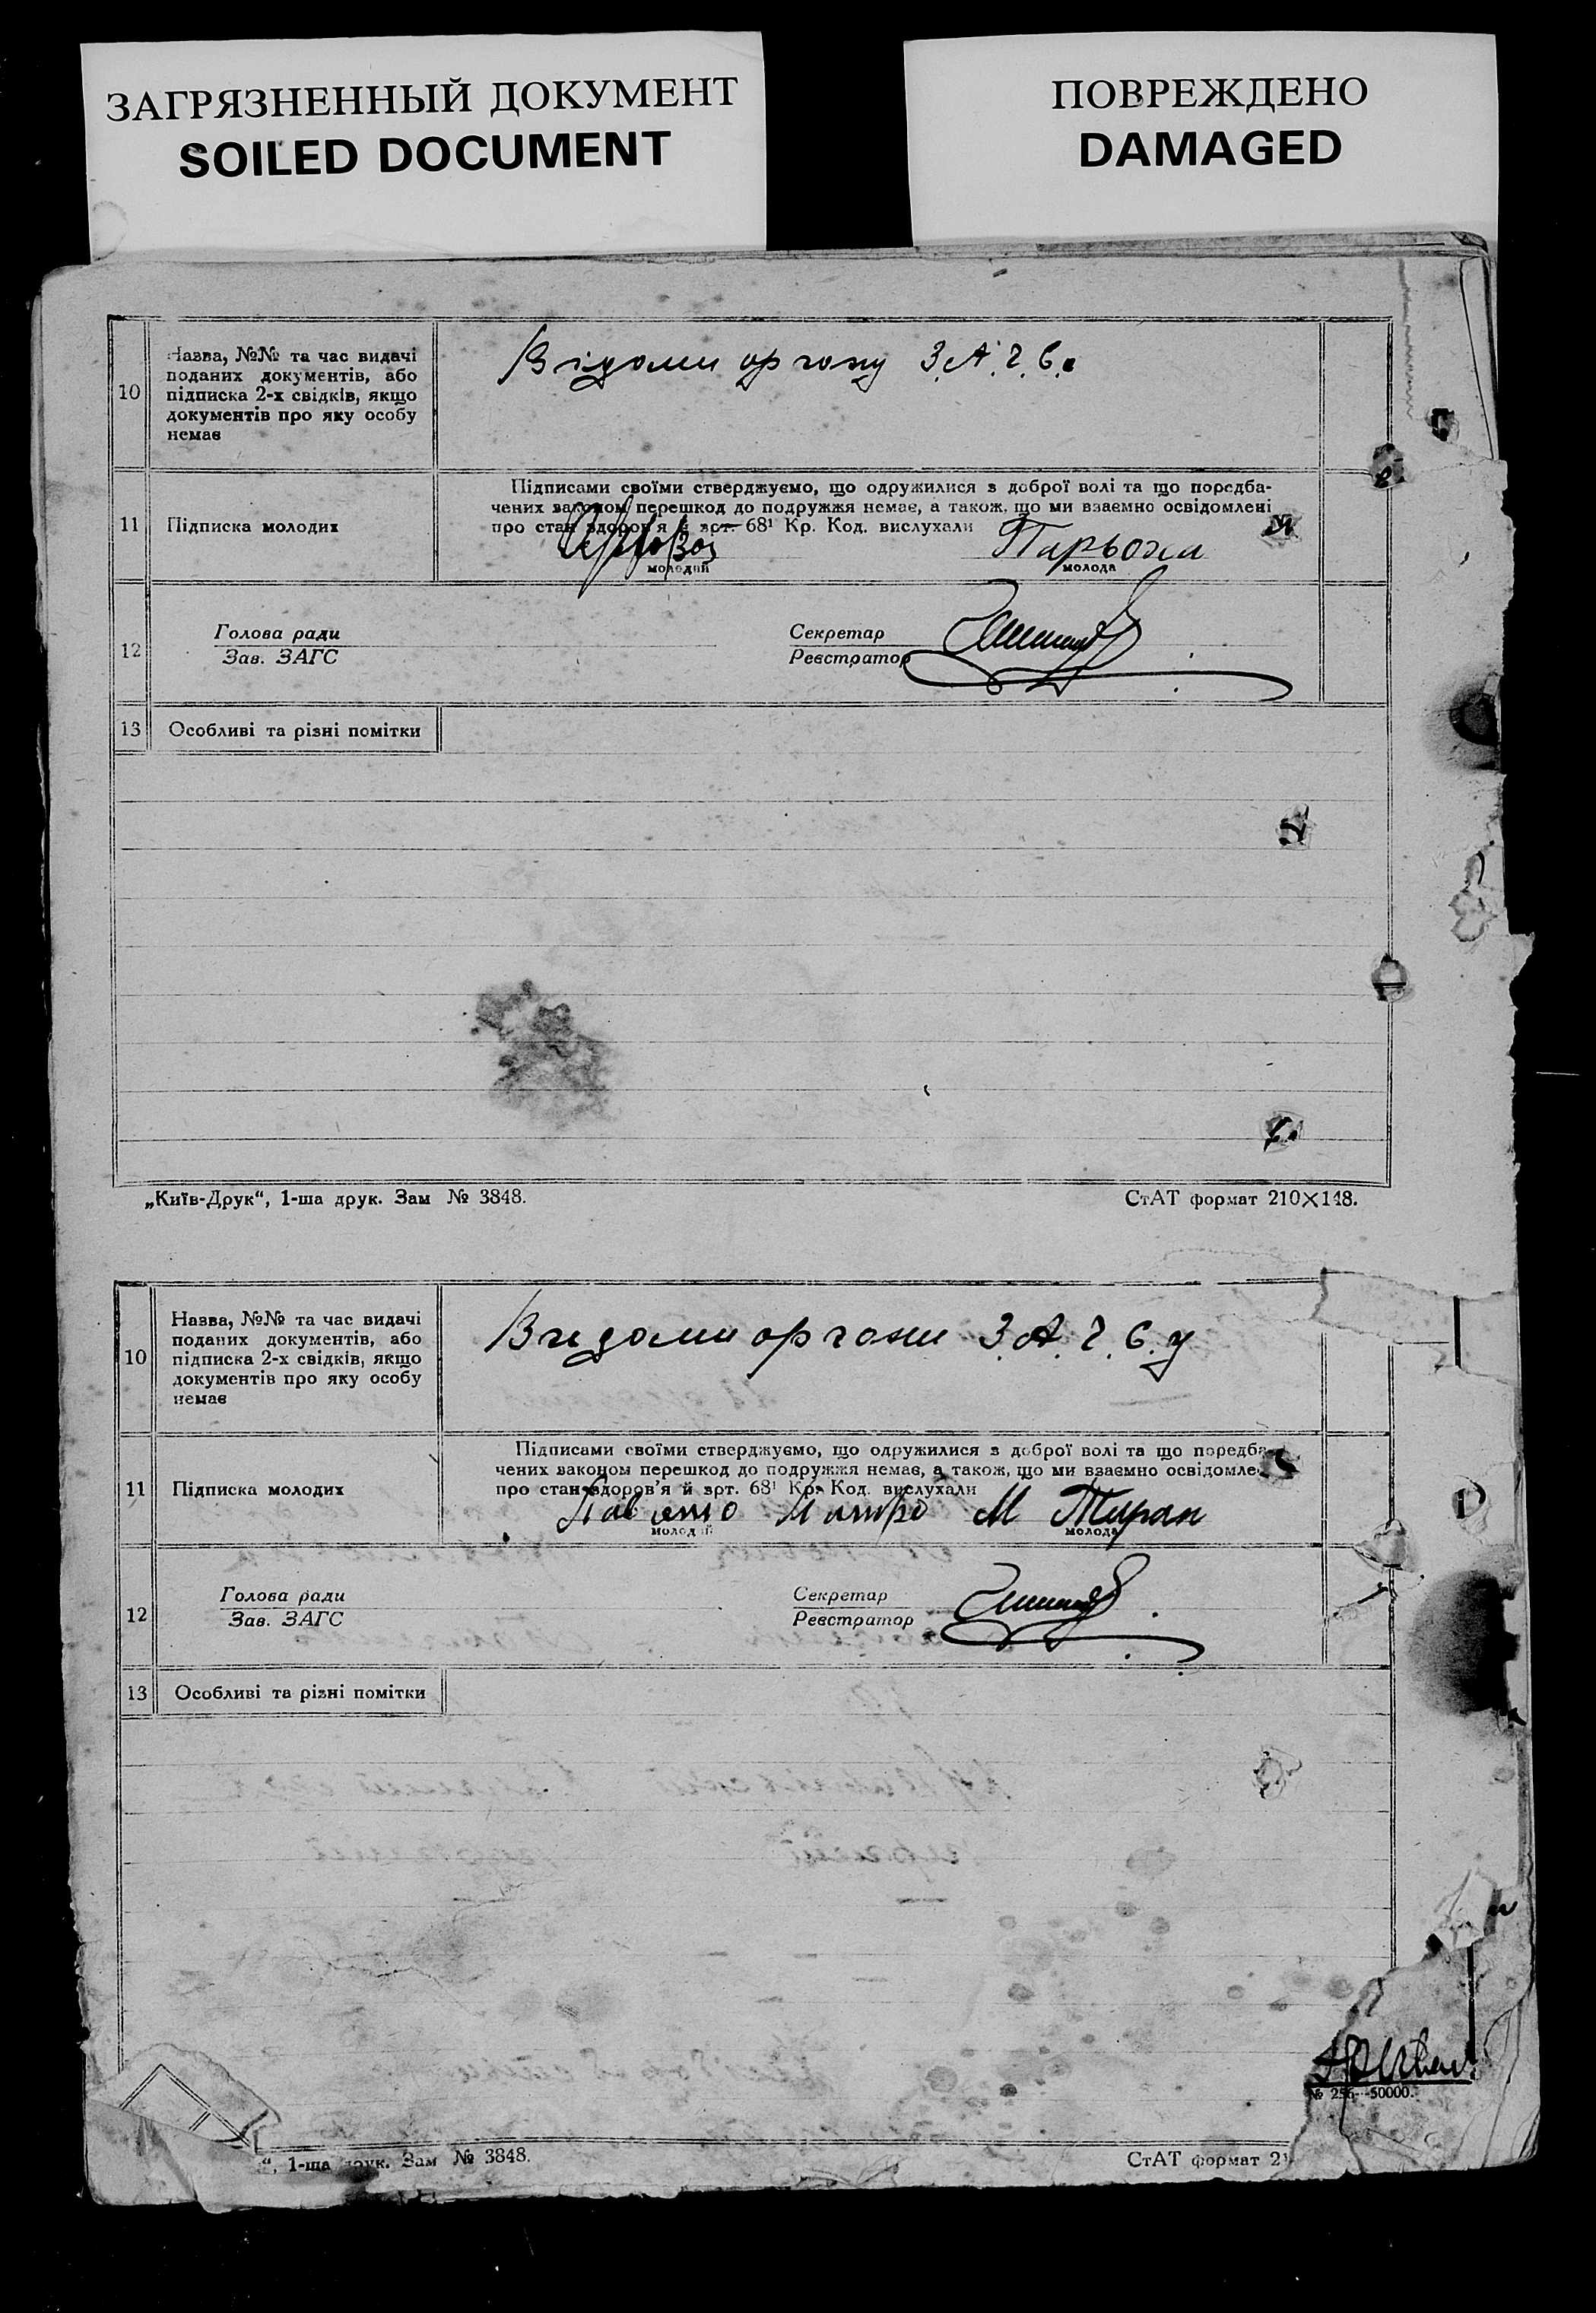 ЗАГРЯЗНЕННЫЙ ДОКУМЕНТ
SOILED DOCUMENT
ПОВРЕЖДЕНО
DAMAGED
10
Назва, №№ та час видачі
поданих документів, або
підписка 2-х свідків, якщо
документів про яку особу
немає
Відоми органу З.А.Г.С.
11
Підписка молодих
Підписами своїми стверджуємо, що одружилися з доброї волі та що поредба-
чених законом перешкод до подружжя немає, а також, що ми взаємно освідомлені
про стан здоров'я й арт. 68¹ Кр. Код. вислухали
молодий
молода
12
Голова ради
Зав. ЗАГС
Секретар
Реєстратор
13
Особливі та різні помітки
„Київ-Друк“, 1-ша друк. Зам № 3848.
СтАТ формат 210×148.
10
Назва, №№ та час видачі
поданих документів, або
підписка 2-х свідків, якщо
документів про яку особу
немає
Відоми органи З.А.Г.С.у
11
Підписка молодих
Підписами своїми стверджуємо, що одружилися з доброї волі та що поредба-
чених законом перешкод до подружжя немає, а також, що ми взаємно освідомле
про стан здоров'я й арт. 68¹ Кр. Код. вислухали
М Тиран
молодий
молода
12
Голова ради
Зав. ЗАГС
Секретар
Реєстратор
13
Особливі та різні помітки
№ 256—50000.
“, 1-ша друк. Зам № 3848.
СтАТ формат 21